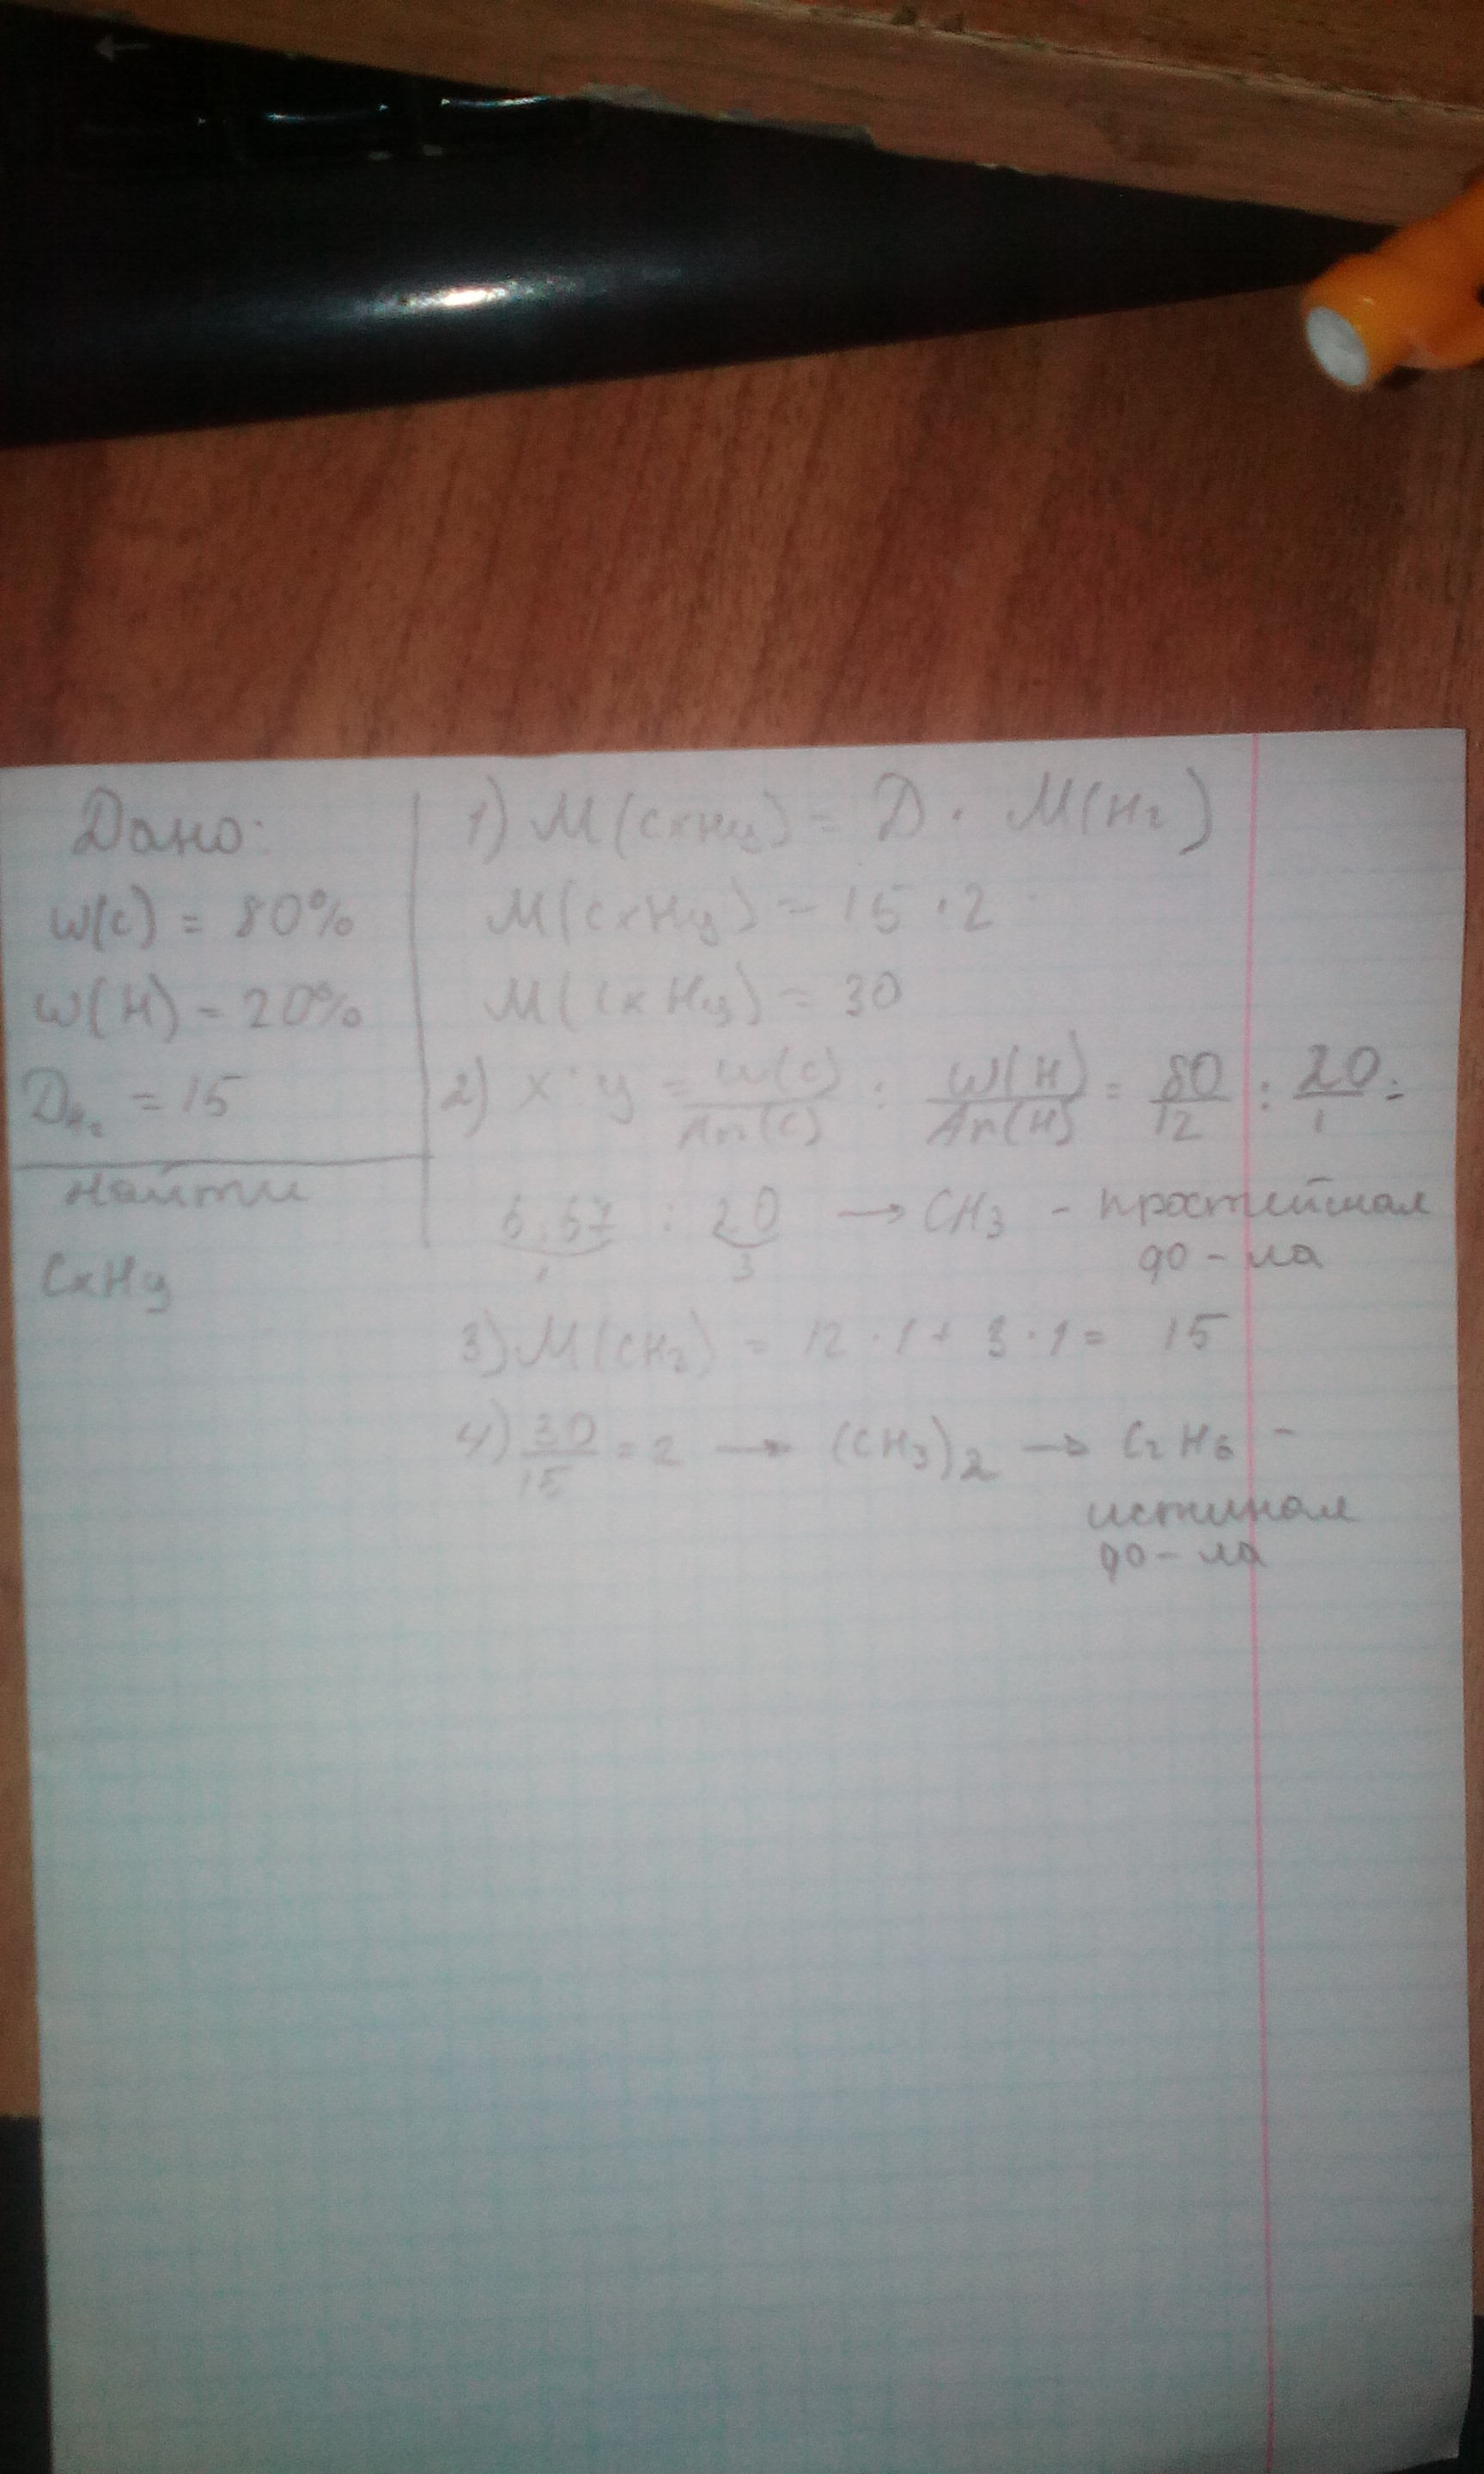 Дано:
w(C) = 80%
w(H) = 20%
D_H₂ = 15
Найти
CxHy
1) M(CxHy) = D · M(H₂)
M(CxHy) = 15 · 2
M(CxHy) = 30
2) x : y = w(C)/Ar(C) : w(H)/Ar(H) = 80/12 : 20/1 =
6,67 : 20 → CH₃ - простейшая
1 3 фо-ла
3) M(CH₃) = 12 · 1 + 3 · 1 = 15
4) 30/15 = 2 → (CH₃)₂ → C₂H₆ -
истиная
фо-ла